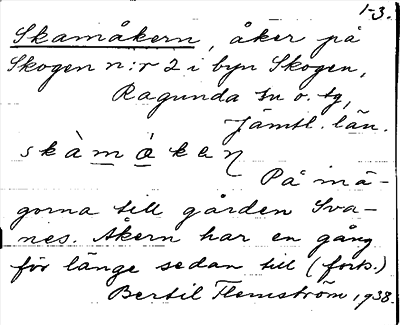 1-3.
Skamåkern, åker på
Skogen n:r 2 i byn Skogen,
Ragunda sn o. tg,
Jämtl. län.
skàmå̀kaɳ
På mä-
gorna till gården Sva-
nes. Åkern har en gång
för länge sedan till (forts.)
Bertil Flemström, 1938.